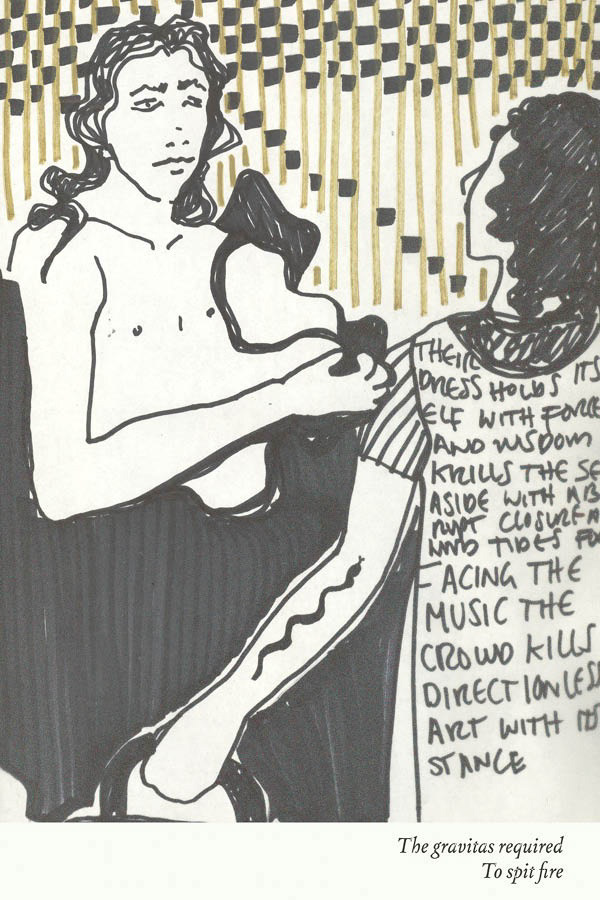 THEIR
DRESS HOLDS ITS
ELF WITH FORCE
AND WISDOM
KRILLS THE SE
ASIDE WITH AB
RUPT CLOSURE A
AND TIDES FO
FACING THE
MUSIC THE
CROWD KILLS
DIRECTIONLESS
ART WITH ITS
STANCE
The gravitas required
To spit fire